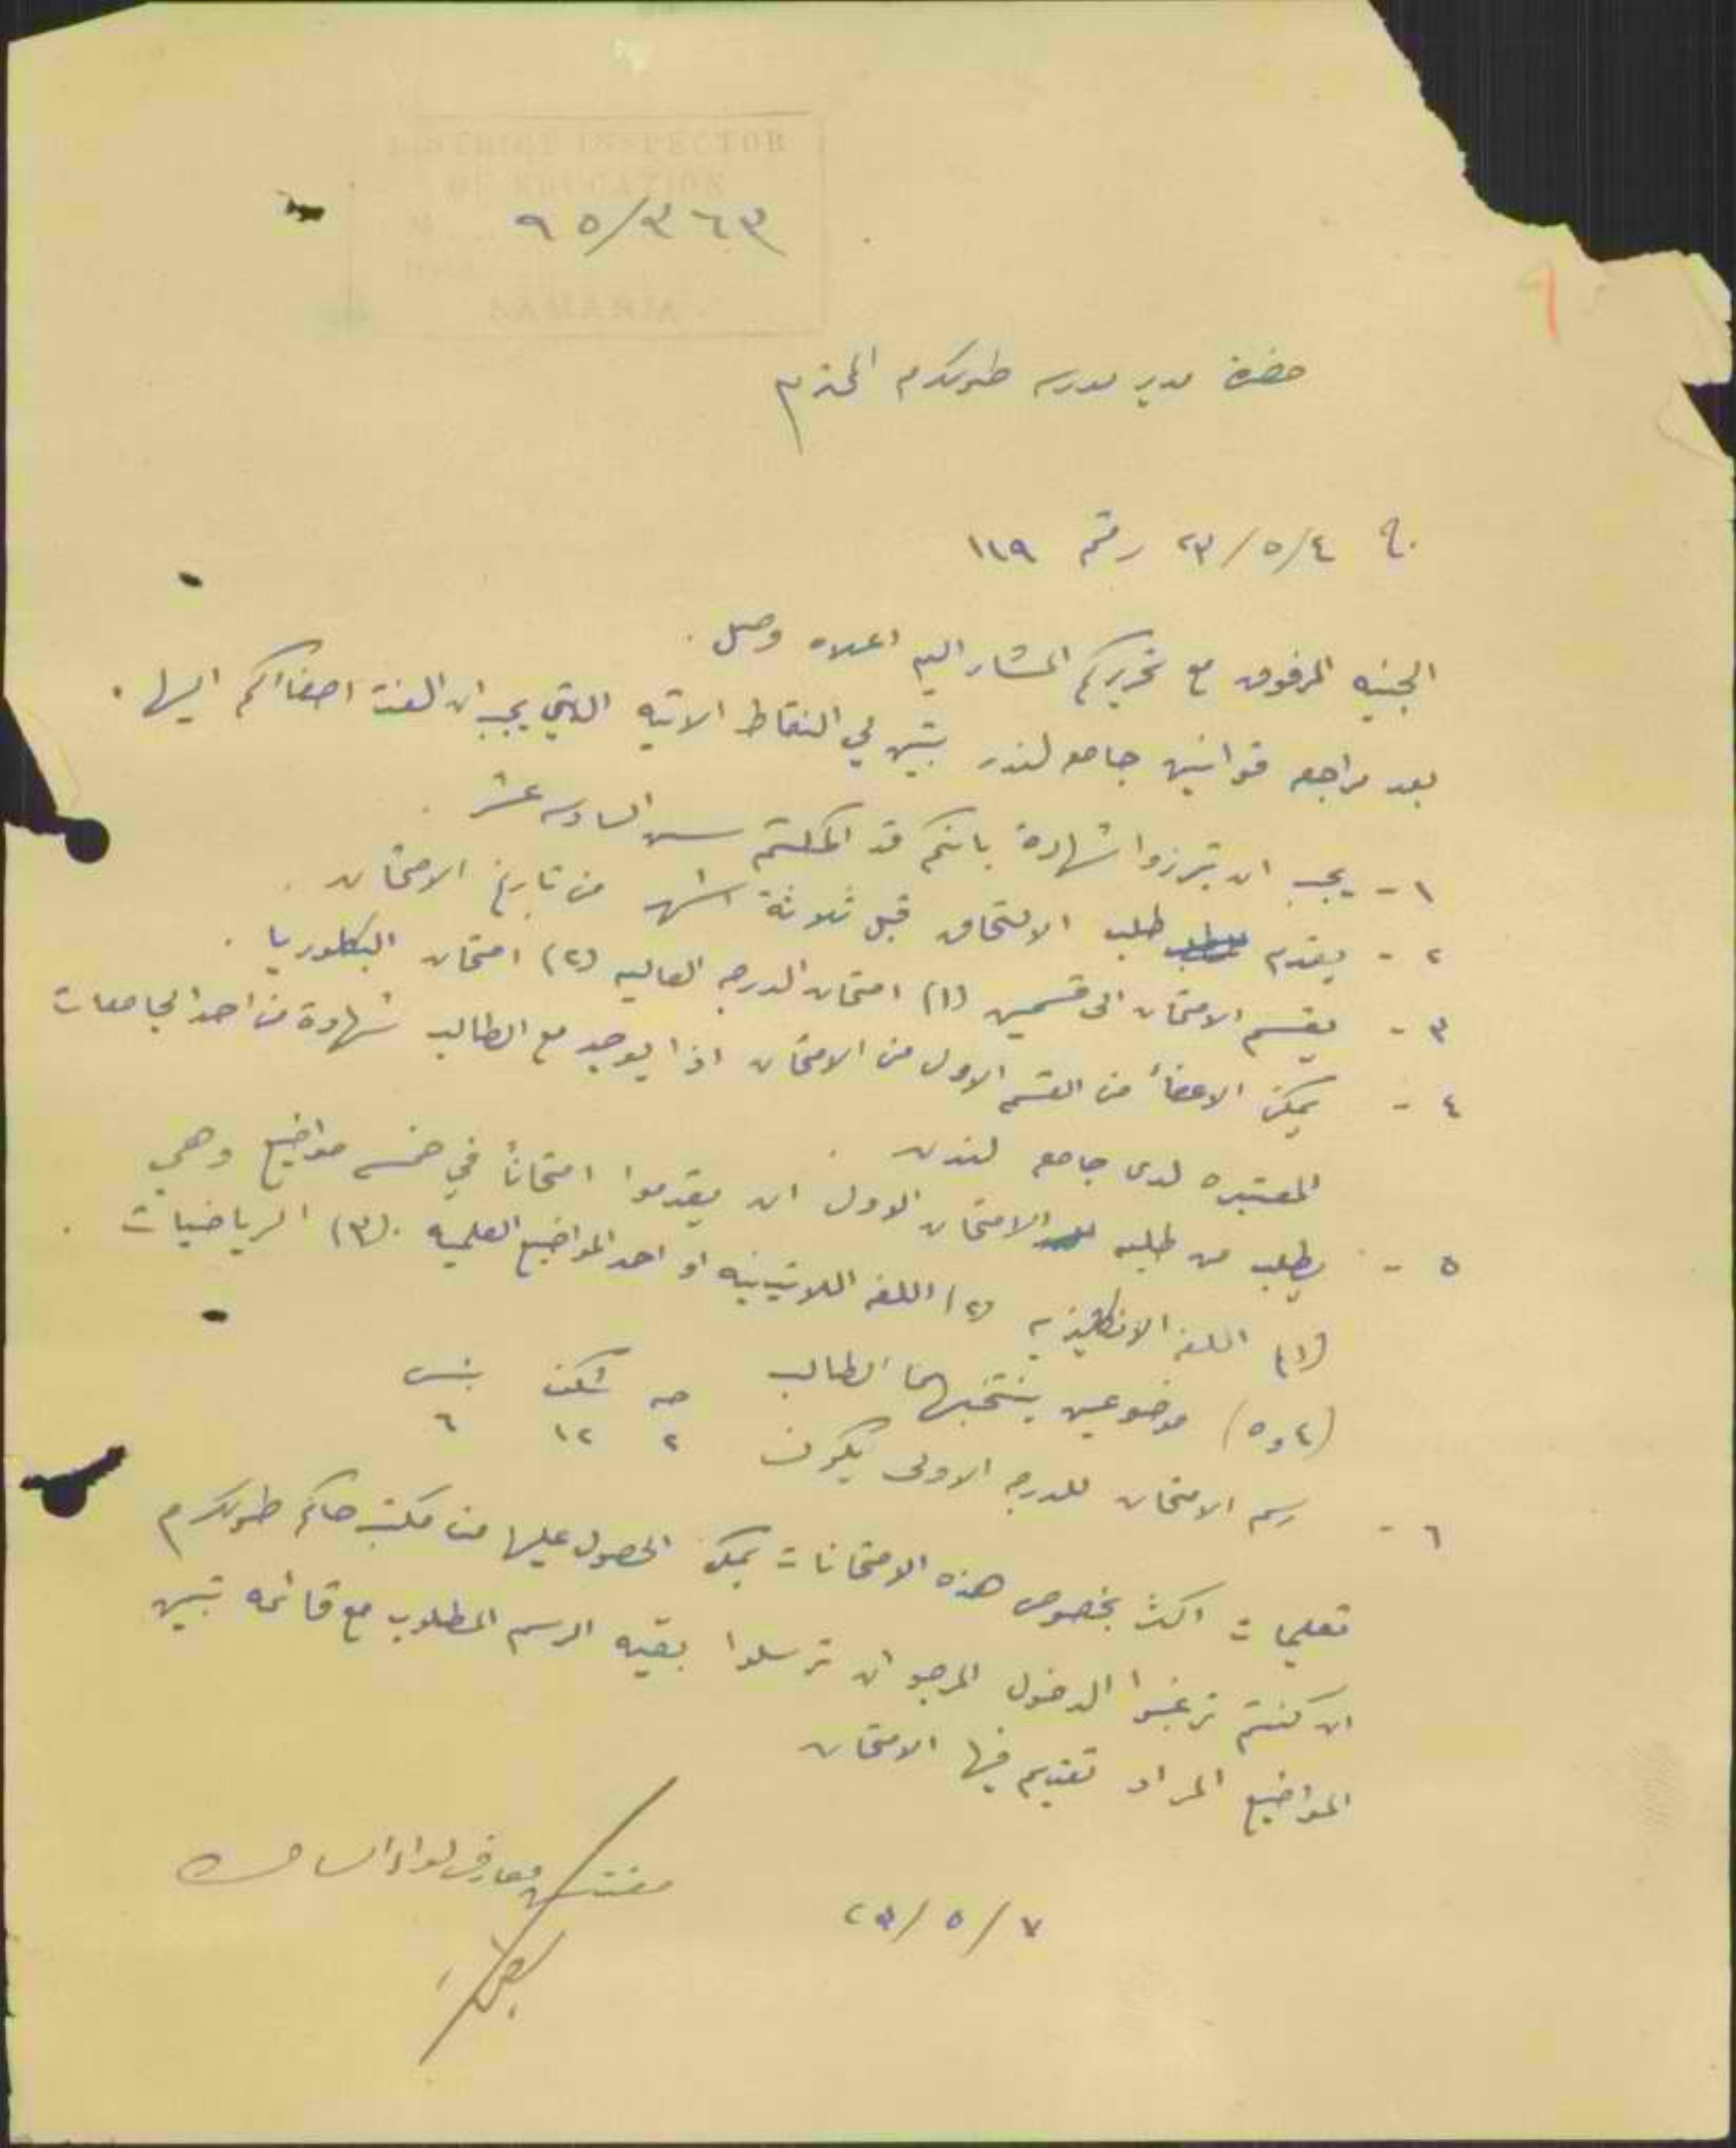 DISTRICT INSPECTOR
OF EDUCATION
٩٥/٣٦٣
SAMARIA.
حضرة مدير مدرسة طولكرم المحترم
ج ٢٣/٥/٤ رقم ١١٩
الجنيه المرفوق مع تحريركم المشار اليه اعلاه وصل.
بعد مراجعه قوانين جامعه لندن تبين لي النقاط الاتيه التي يجب ان الفت اصغاءكم اليها.
١ - يجب ان تبرزوا شهادة بانكم قد اكملتم سن السادسه عشر.
٢ - يقدم طلب الالتحاق قبل ثلاثة اشهر من تاريخ الامتحان.
٣ - يقسم الامتحان الى قسمين (١) امتحان الدرجه العاليه (٢) امتحان البكلوريا.
٤ - يمكن الاعفاء من القسم الاول من الامتحان اذا يوجد مع الطالب شهادة من احد الجامعات
المعتبره لدى جامعه لندن.
٥ - يطلب من طلبه الامتحان الاول ان يقدموا امتحاناً في خمسه مواضيع وهي
(١) اللغه الانكليزيه (٢) اللغه اللاتينيه او احد المواضيع العلميه. (٣) الرياضيات.
(٤ و ٥) موضوعين ينتخبهما الطالب
جه شلن بنس
٦ - رسم الامتحان للدرجه الاولى يكون ٢ ١٢ ٦
تعليمات اكثر بخصوص هذه الامتحانات يمكن الحصول عليها من مكتب حاكم طولكرم
ان كنتم ترغبوا الدخول المرجو ان ترسلوا بقيه الرسم المطلوب مع قائمه تبين
المواضيع المراد تقديم فيها الامتحان
مفتش معارف لواء السامره
٢٣/٥/٧